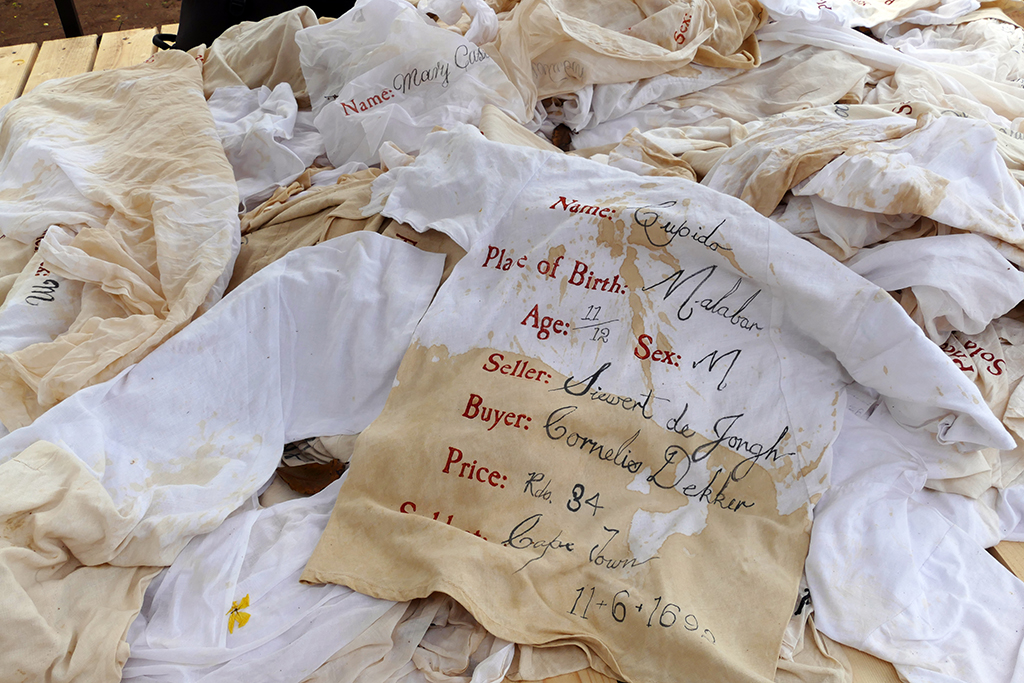 Sex:
Name: Mary
Name: Cupido
Place of Birth: Malabar
Age: 11/12 Sex: M
Seller: Siewert de Jongh
Buyer: Cornelis Dekker
Price: Rds. 84
Cape Town
11+6+169
Sola
M